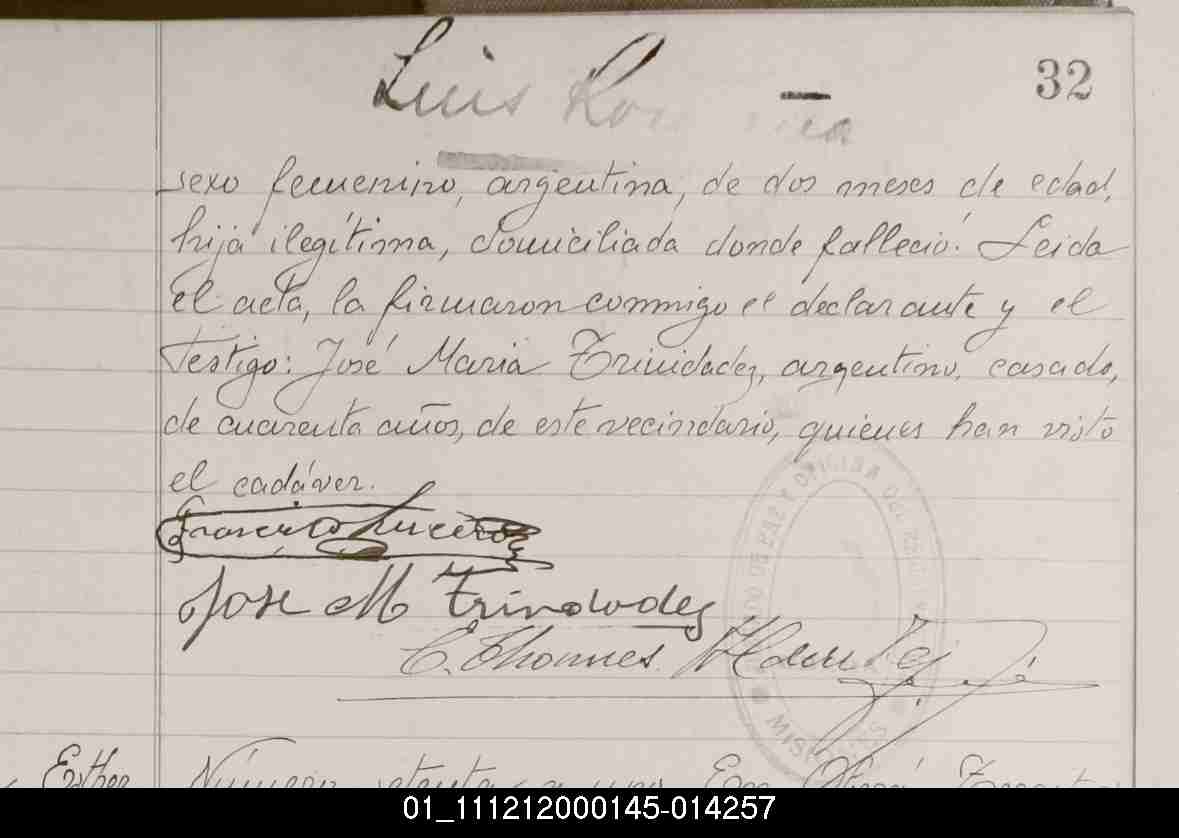 Luis
32
sexo femenino, argentina, de dos meses de edad,
hija ilegítima, domiciliada donde falleció. Leida
el acta, la firmaron conmigo el declarante y el
testigo: José Maria Trinidadez, argentino, casado,
de cuarenta años, de este vecindario, quienes han visto
el cadáver.
Francisco Lucero
Jose M Trindodez
C. Thomes
MISIONES
Esther Número setenta y uno En
01_111212000145-014257